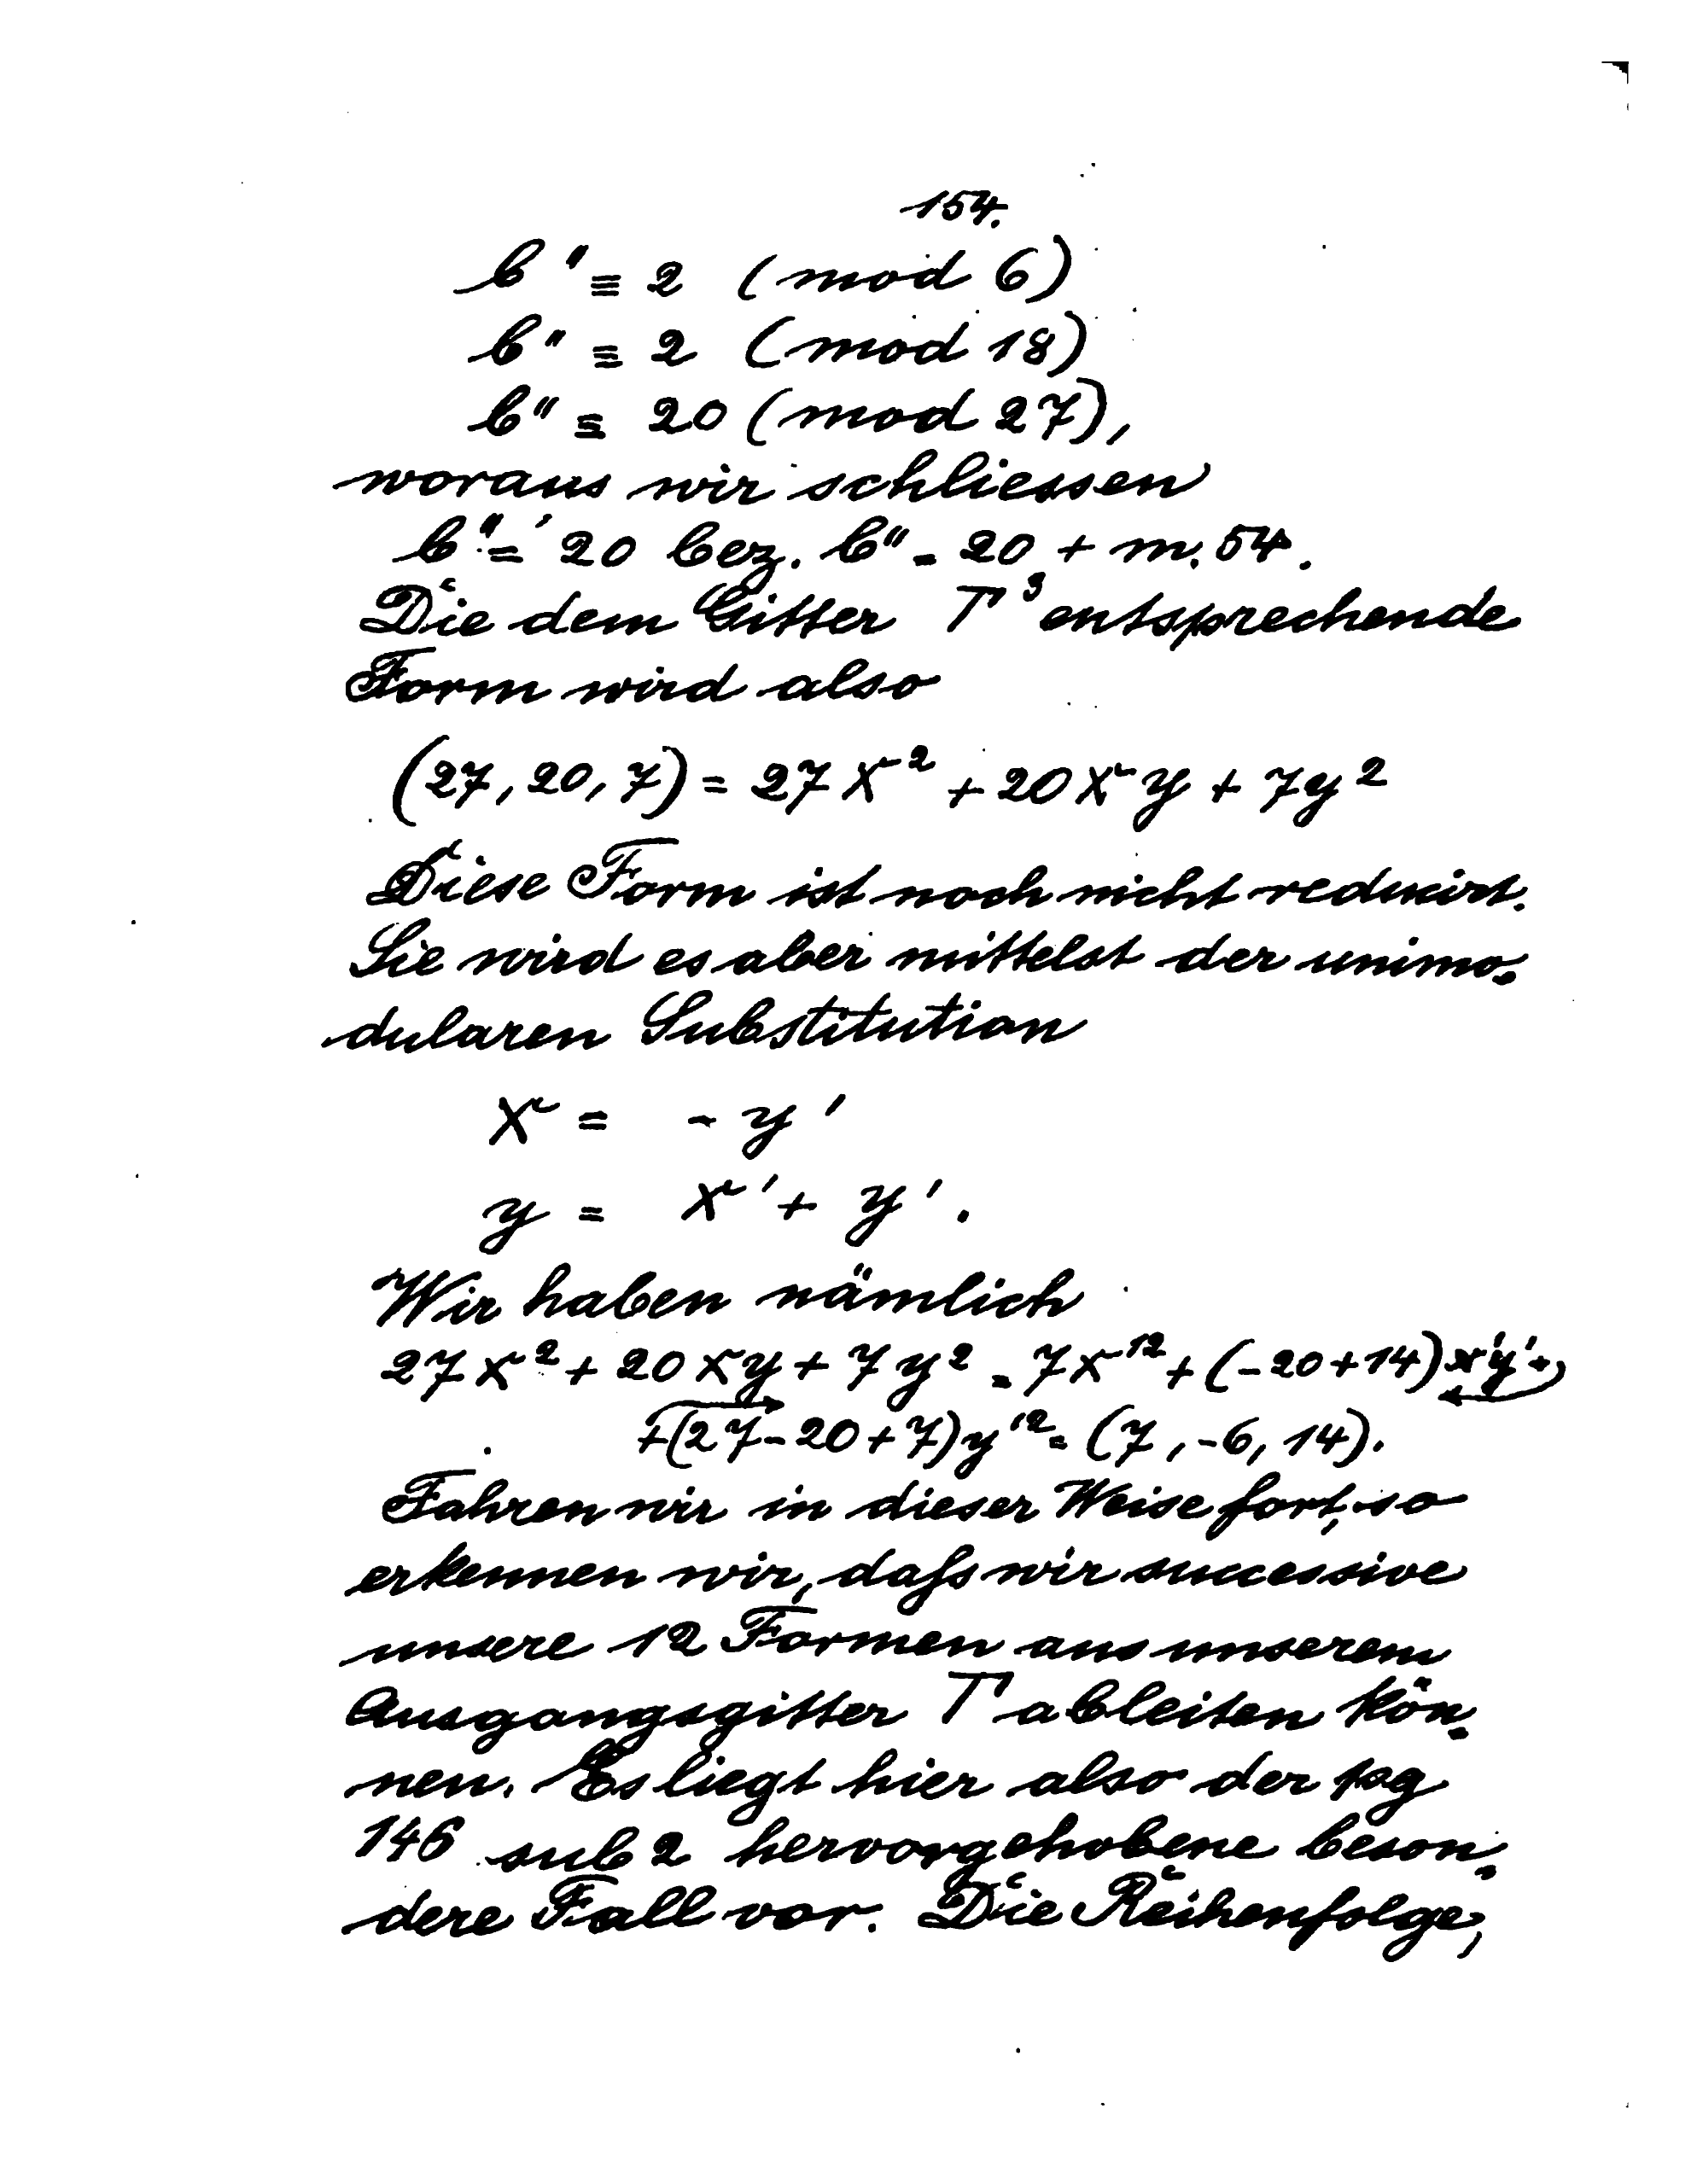 154.
b" ≡ 2 (mod 6)
b" ≡ 2 (mod 18)
b" ≡ 20 (mod 27),
woraus wir schliessen
b" = 20 bez. b" = 20 + m. 54.
Die dem Gitter T³ entsprechende
Form wird also
(27, 20, 7) = 27x² + 20xy + 7y²
Diese Form ist noch nicht reducirt.
Sie wird es aber mittelst der unimo-
dularen Substitution
x = - y'
y = x' + y'.
Wir haben nämlich
27x² + 20xy + 7y² = 7x'² + (-20+14)x'y' +
+(27-20+7)y'² = (7, -6, 14).
Fahren wir in dieser Weise fort, so
erkennen wir, dafs wir successive
unsere 12 Formen aus unserem
Ausgangsgitter T ableiten kön-
nen. Es liegt hier also der pag
146 sub 2 hervorgehobene beson-
dere Fall vor. Die Reihenfolge,